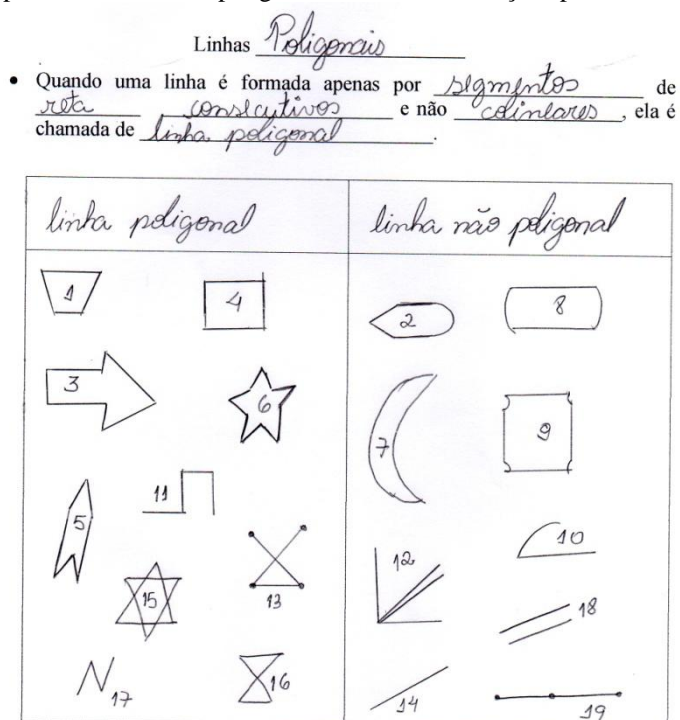 Linhas Poligonais
• Quando uma linha é formada apenas por segmentos de
reta consecutivos e não colineares, ela é
chamada de linha poligonal.
linha poligonal linha não poligonal
1 4 2 8
3 6 7 9
11
5 10
12
15 13 18
17 16 14 19